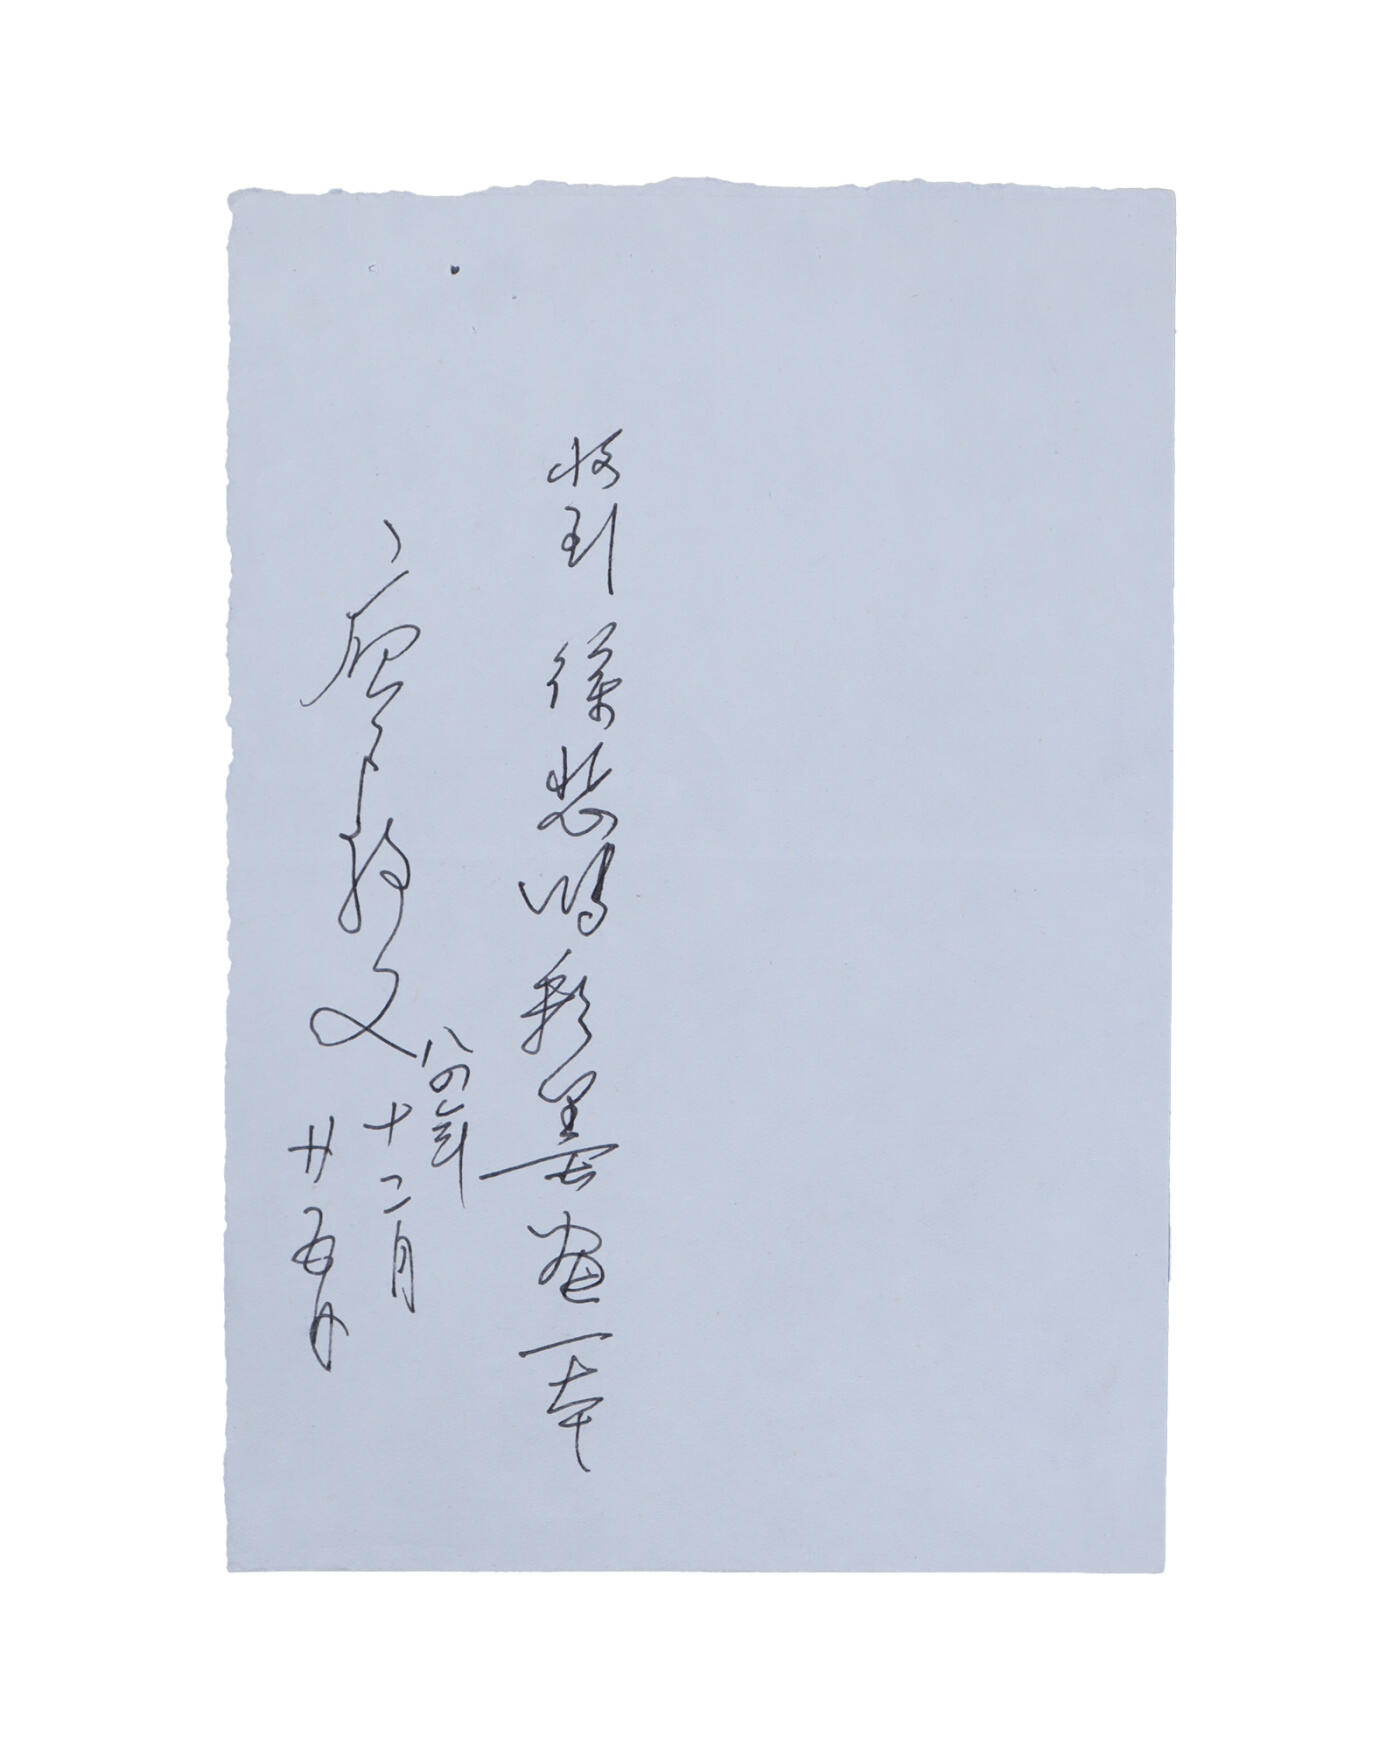 收到 徐悲鸿彩墨画一本
廖静文
八四年
十二月
廿五日